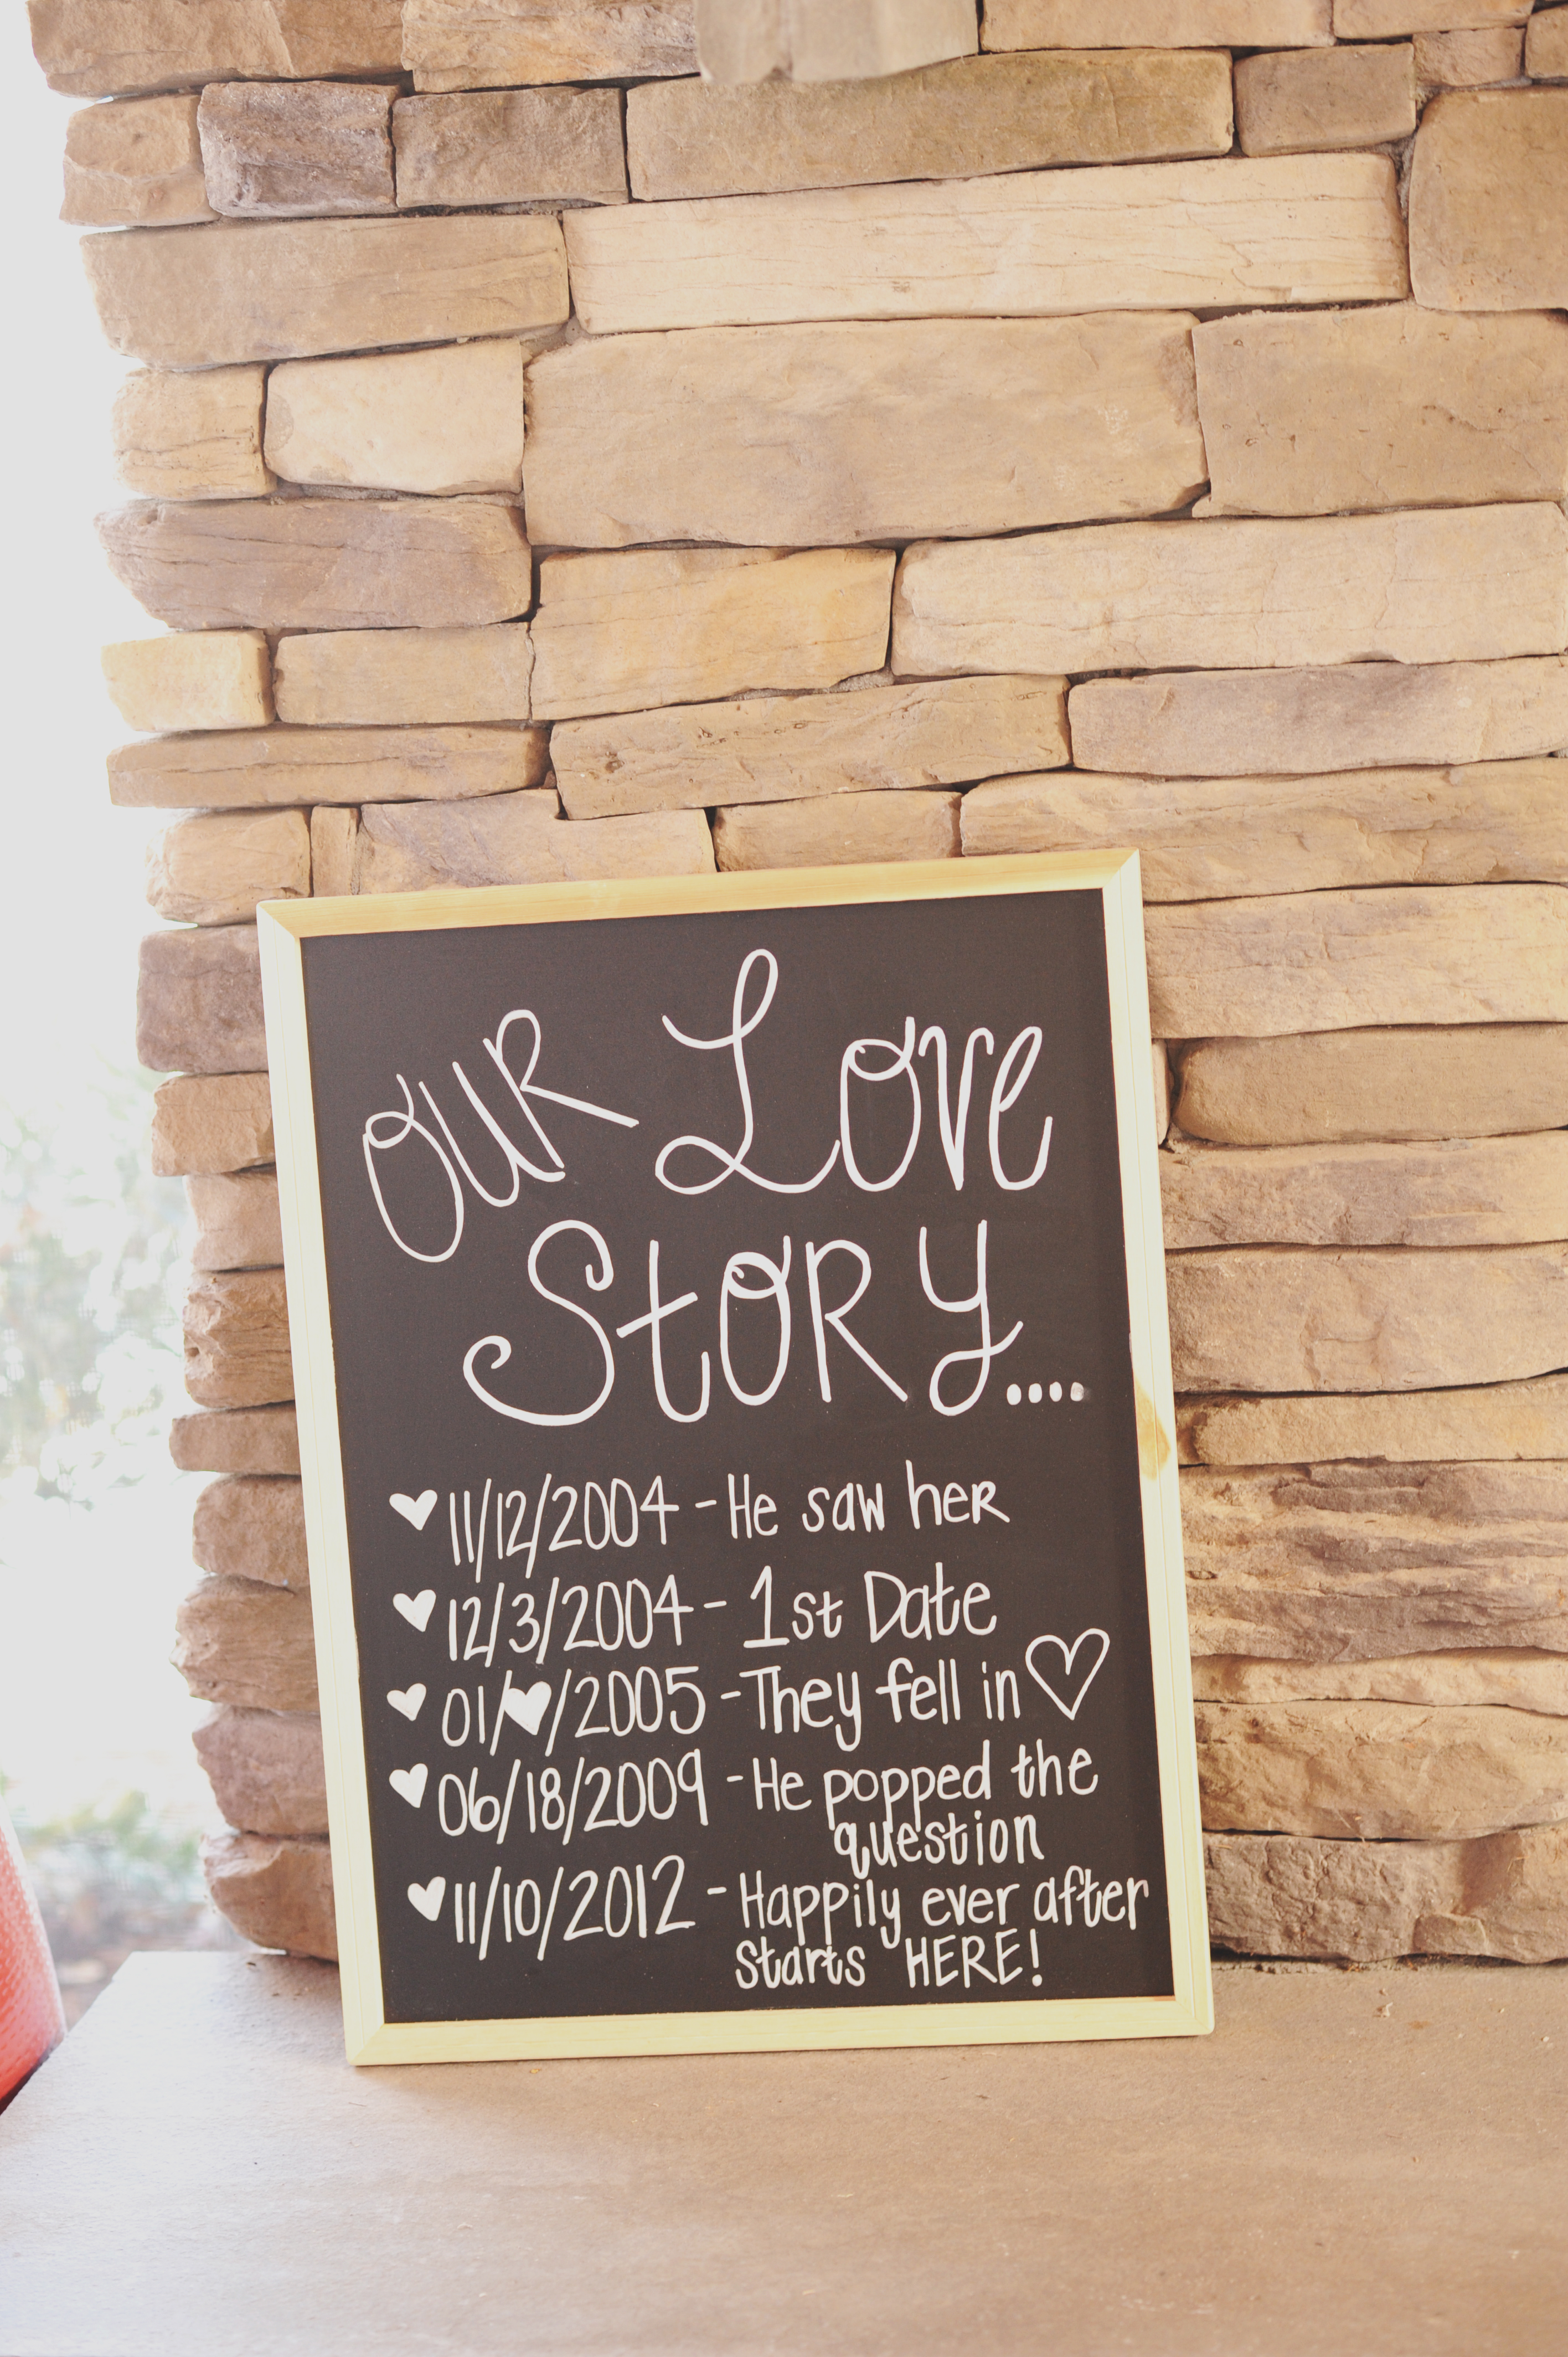 OUR Love
StORY....
♥ 11/12/2004 - He saw heR
♥ 12/3/2004 - 1st Date
♥ 01/♥/2005 - They fell in ♡
♥ 06/18/2009 - He popped the
question
♥ 11/10/2012 - Happily ever after
starts HERE!